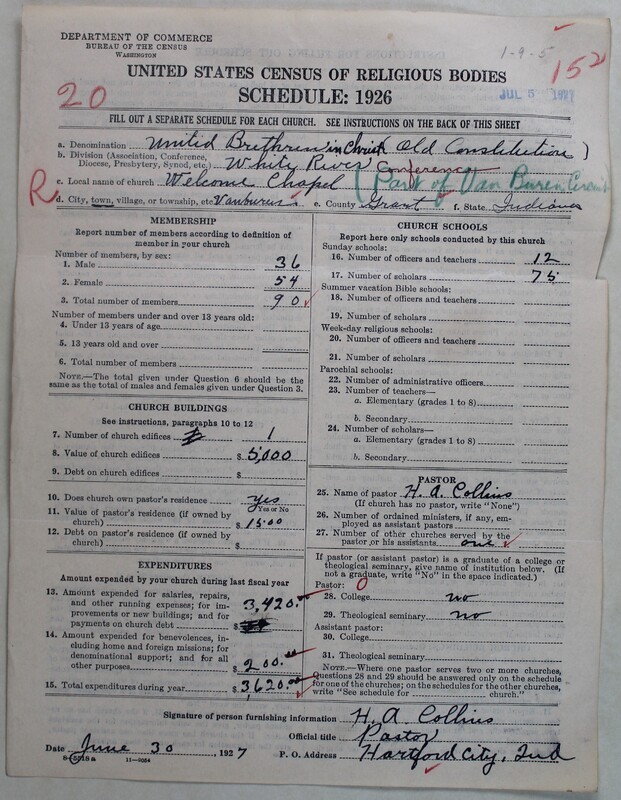 DEPARTMENT OF COMMERCE
BUREAU OF THE CENSUS
WASHINGTON
1-9-5
152
20
UNITED STATES CENSUS OF RELIGIOUS BODIES
SCHEDULE: 1926
JUL 5 1927
FILL OUT A SEPARATE SCHEDULE FOR EACH CHURCH. SEE INSTRUCTIONS ON THE BACK OF THIS SHEET
a. Denomination United Brethren in Christ (Old Constitution)
b. Division (Association, Conference, Diocese, Presbytery, Synod, etc.) White River Conference
c. Local name of church Welcome Chapel (Part of Van Buren Circuit
R
d. City, town, village, or township, etc. Vanburen e. County Grant f. State Indiana
MEMBERSHIP
Report number of members according to definition of
member in your church
Number of members, by sex:
1. Male 36
2. Female 54
3. Total number of members 90
Number of members under and over 13 years old:
4. Under 13 years of age
5. 13 years old and over
6. Total number of members
NOTE.—The total given under Question 6 should be the
same as the total of males and females given under Question 3.
CHURCH BUILDINGS
See instructions, paragraphs 10 to 12
7. Number of church edifices 1
8. Value of church edifices $ 5,000
9. Debt on church edifices $
10. Does church own pastor's residence yes
Yes or No
11. Value of pastor's residence (if owned by
church) $ 1500
12. Debt on pastor's residence (if owned by
church) $
EXPENDITURES
Amount expended by your church during last fiscal year
13. Amount expended for salaries, repairs,
and other running expenses; for im-
provements or new buildings; and for
payments on church debt $ 3,420.00
14. Amount expended for benevolences, in-
cluding home and foreign missions; for
denominational support; and for all
other purposes $ 200.00
15. Total expenditures during year $ 3,620.00
CHURCH SCHOOLS
Report here only schools conducted by this church
Sunday schools:
16. Number of officers and teachers 12
17. Number of scholars 75
Summer vacation Bible schools:
18. Number of officers and teachers
19. Number of scholars
Week-day religious schools:
20. Number of officers and teachers
21. Number of scholars
Parochial schools:
22. Number of administrative officers
23. Number of teachers—
a. Elementary (grades 1 to 8)
b. Secondary
24. Number of scholars—
a. Elementary (grades 1 to 8)
b. Secondary
PASTOR
25. Name of pastor H. A. Collins
(If church has no pastor, write "None")
26. Number of ordained ministers, if any, em-
ployed as assistant pastors
27. Number of other churches served by the
pastor or his assistants one
If pastor (or assistant pastor) is a graduate of a college or
theological seminary, give name of institution below. (If
not a graduate, write "No" in the space indicated.)
Pastor: 0
28. College no
29. Theological seminary no
Assistant pastor:
30. College
31. Theological seminary
NOTE.—Where one pastor serves two or more churches,
Questions 28 and 29 should be answered only on the schedule
for one of the churches; on the schedules for the other churches,
write "See schedule for church."
Signature of person furnishing information H. A. Collins
Official title Pastor
Date June 30 1927 P. O. Address Hartford City, Ind
8-5518a 11-9054